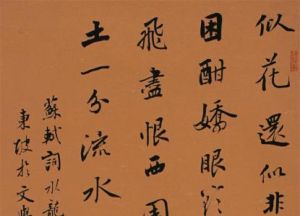 似花還似非
困酣嬌眼欲
飛盡恨西園
土一分流水
蘇軾詞水龍
東坡於文